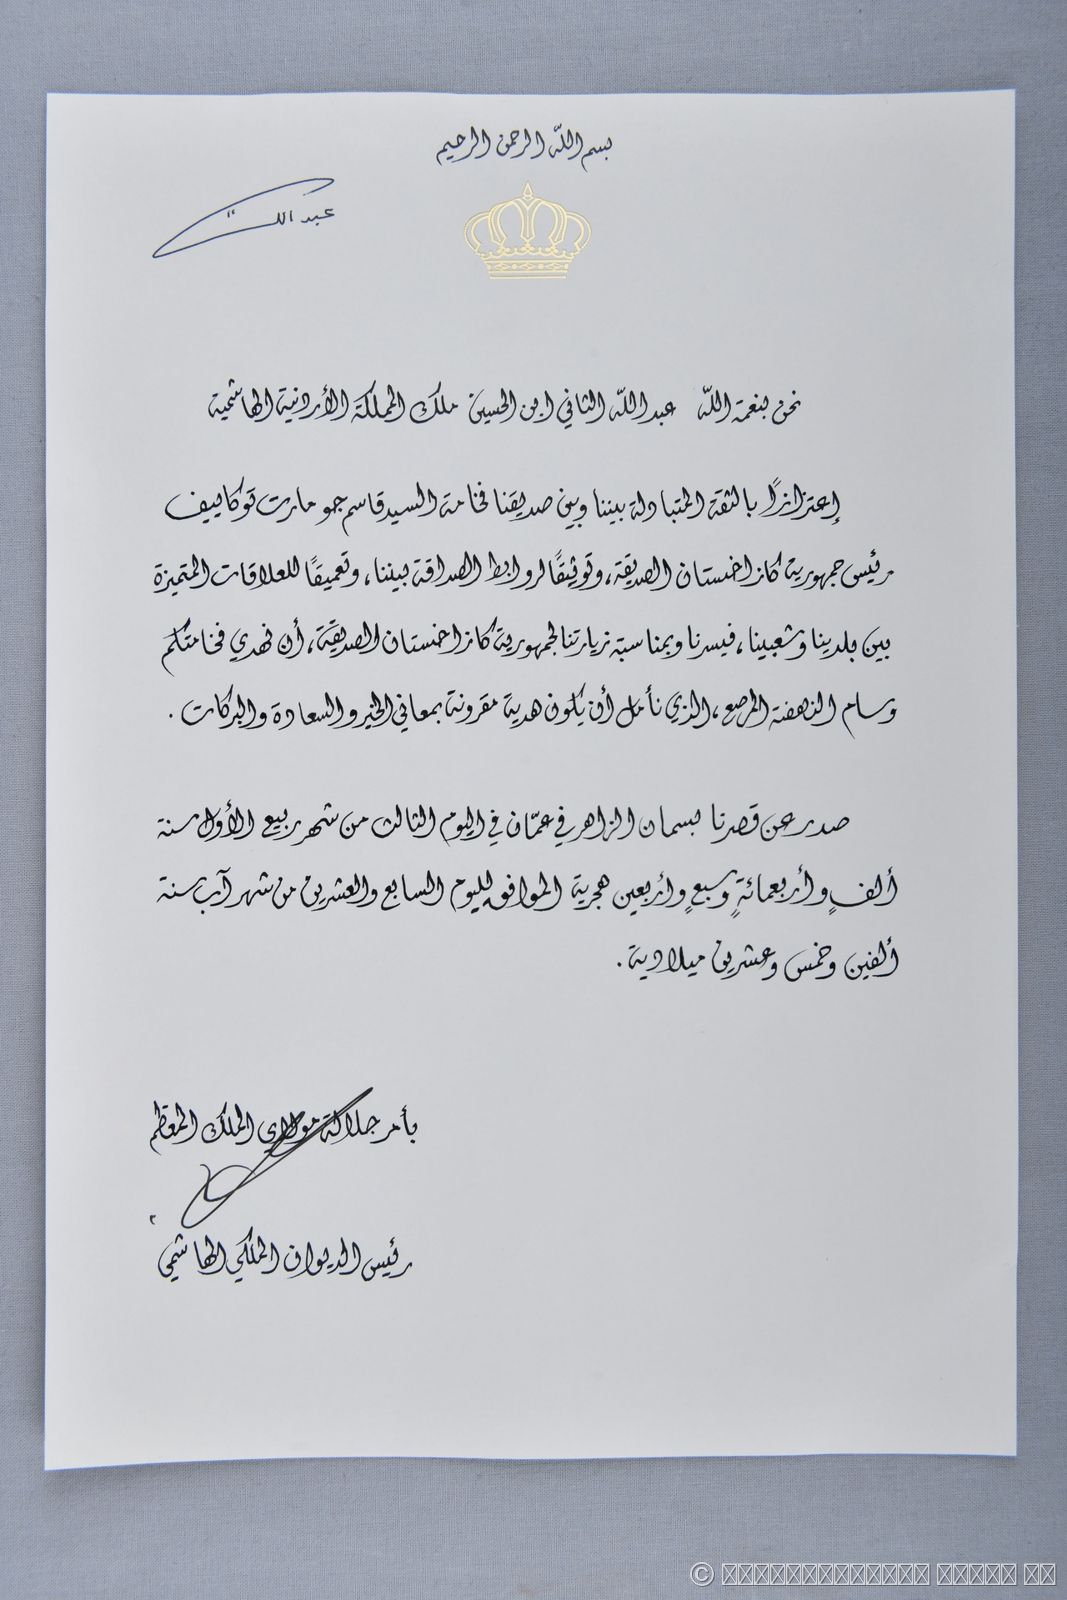 بسم الله الرحمن الرحيم
عبد الله
نحن بنعمة الله عبد الله الثاني ابن الحسين ملك المملكة الأردنية الهاشمية
إعتزازًا بالثقة المتبادلة بيننا وبين صديقنا فخامة السيد قاسم جومارت توكاييف
رئيس جمهورية كازاخستان الصديقة، وتوثيقًا لروابط الصداقة بيننا، وتعميقًا للعلاقات المتميزة
بين بلدينا وشعبينا، فيسرنا وبمناسبة زيارتنا لجمهورية كازاخستان الصديقة، أن نهدي فخامتكم
وسام النهضة المرصع، الذي نأمل أن يكون هدية مقرونة بمعاني الخير والسعادة والبركات .
صدر عن قصرنا بسمان الزاهر في عمّان في اليوم الثالث من شهر ربيع الأول سنة
ألفٍ وأربعمائةٍ وسبعٍ وأربعين هجرية الموافق لليوم السابع والعشرين من شهر آب سنة
ألفين وخمس وعشرين ميلادية .
بأمر جلالة مولاي الملك المعظم
رئيس الديوان الملكي الهاشمي